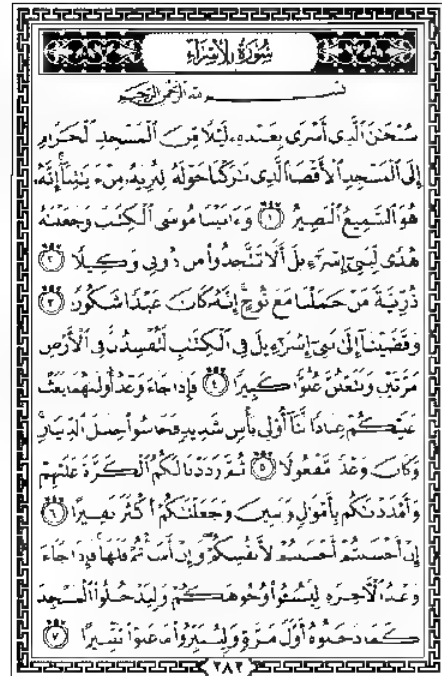 سُورَةُ الإِسْرَاءِ
بِسْمِ اللَّهِ الرَّحْمَٰنِ الرَّحِيمِ
سُبْحَٰنَ ٱلَّذِىٓ أَسْرَىٰ بِعَبْدِهِۦ لَيْلًا مِّنَ ٱلْمَسْجِدِ ٱلْحَرَامِ
إِلَى ٱلْمَسْجِدِ ٱلْأَقْصَا ٱلَّذِى بَٰرَكْنَا حَوْلَهُۥ لِنُرِيَهُۥ مِنْ ءَايَٰتِنَآ إِنَّهُۥ
هُوَ ٱلسَّمِيعُ ٱلْبَصِيرُ ١ وَءَاتَيْنَا مُوسَى ٱلْكِتَٰبَ وَجَعَلْنَٰهُ
هُدًى لِّبَنِىٓ إِسْرَٰٓءِيلَ أَلَّا تَتَّخِذُوا۟ مِن دُونِى وَكِيلًا ٢
ذُرِّيَّةَ مَنْ حَمَلْنَا مَعَ نُوحٍ إِنَّهُۥ كَانَ عَبْدًا شَكُورًا ٣
وَقَضَيْنَآ إِلَىٰ بَنِىٓ إِسْرَٰٓءِيلَ فِى ٱلْكِتَٰبِ لَتُفْسِدُنَّ فِى ٱلْأَرْضِ
مَرَّتَيْنِ وَلَتَعْلُنَّ عُلُوًّا كَبِيرًا ٤ فَإِذَا جَآءَ وَعْدُ أُولَىٰهُمَا بَعَثْنَا
عَلَيْكُمْ عِبَادًا لَّنَآ أُو۟لِى بَأْسٍ شَدِيدٍ فَجَاسُوا۟ خِلَٰلَ ٱلدِّيَارِ
وَكَانَ وَعْدًا مَّفْعُولًا ٥ ثُمَّ رَدَدْنَا لَكُمُ ٱلْكَرَّةَ عَلَيْهِمْ
وَأَمْدَدْنَٰكُم بِأَمْوَٰلٍ وَبَنِينَ وَجَعَلْنَٰكُمْ أَكْثَرَ نَفِيرًا ٦
إِنْ أَحْسَنتُمْ أَحْسَنتُمْ لِأَنفُسِكُمْ وَإِنْ أَسَأْتُمْ فَلَهَا فَإِذَا جَآءَ
وَعْدُ ٱلْءَاخِرَةِ لِيَسُۥٓـُٔوا۟ وُجُوهَكُمْ وَلِيَدْخُلُوا۟ ٱلْمَسْجِدَ
كَمَا دَخَلُوهُ أَوَّلَ مَرَّةٍ وَلِيُتَبِّرُوا۟ مَا عَلَوْا۟ تَتْبِيرًا ٧
٢٨٢